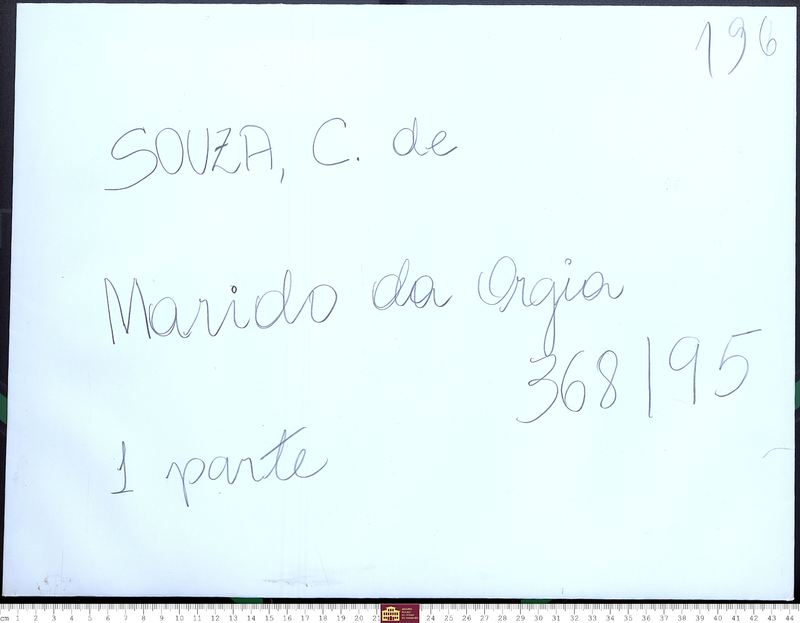 196
SOUZA, C. de
Marido da Orgia
368/95
1 parte
cm 1 2 3 4 5 6 7 8 9 10 11 12 13 14 15 16 17 18 19 20 2 24 25 26 27 28 29 30 31 32 33 34 35 36 37 38 39 40 41 42 43 44